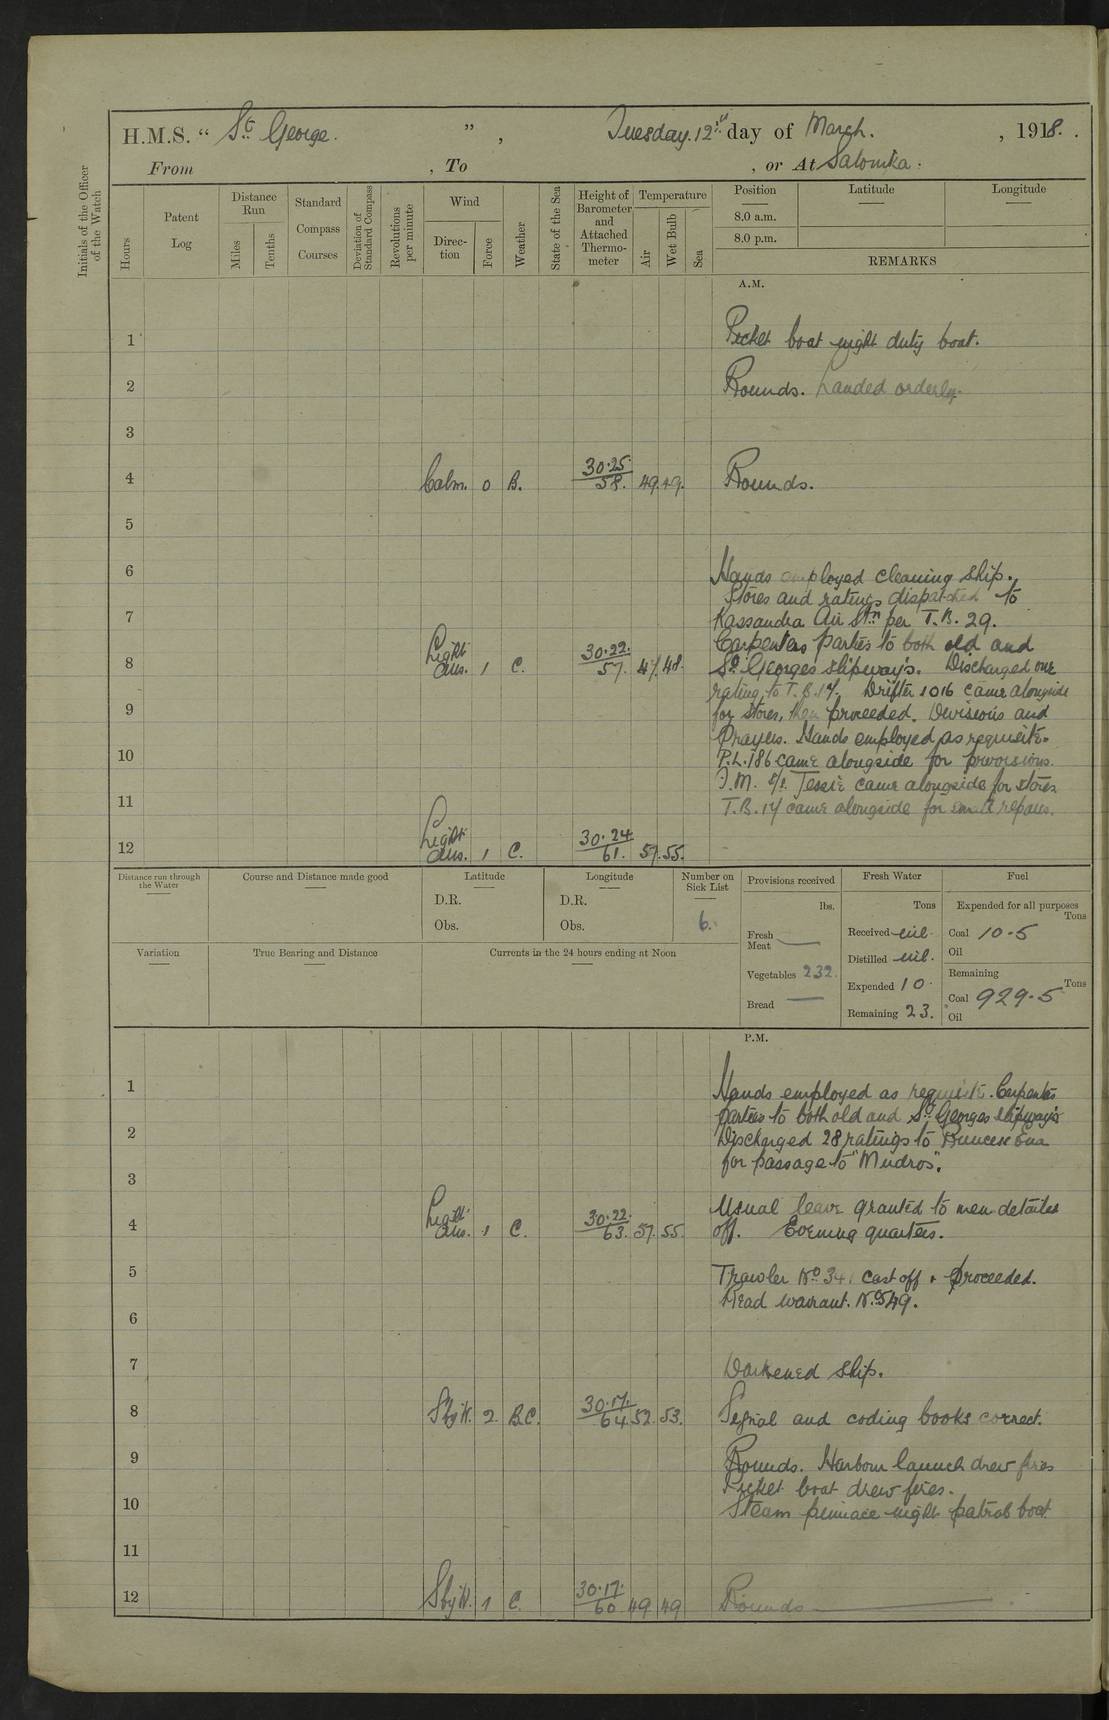 H.M.S. “ St George. ” , Tuesday. 12th day of March. , 1918.
From , To , or At Salonika.
Initials of the Officer of the Watch
Hours
Patent Log
Distance Run
Miles
Tenths
Standard Compass Courses
Deviation of Standard Compass
Revolutions per minute
Wind
Direc-tion
Force
Weather
State of the Sea
Height of Barometer and Attached Thermo-meter
Temperature
Air
Wet Bulb
Sea
Position
Latitude
Longitude
8.0 a.m.
8.0 p.m.
REMARKS
A.M.
1 Picket boat night duty boat.
2 Rounds. Landed orderly.
3
4 Calm. 0 B. 30.25. 58. 49. 49. Rounds.
5
6 Hands employed cleaning ship.
Stores and ratings dispatched to
7 Kassandra Air Stn per T.B. 29.
Carpenters parties to both old and
8 Light airs. 1 C. 30.22. 57. 47. 48. St Georges slipways. Discharged one
rating to T.B. 17. Drifter 1016 came alongside
9 for stores, then proceeded. Divisions and
Prayers. Hands employed as requisite.
10 P.L. 186 came alongside for provisions.
T.M. s/s. Jessie came alongside for stores
11 T.B. 17 came alongside for small repairs.
12 Light airs. 1 C. 30.24. 61. 57. 55.
Distance run through the Water
Course and Distance made good
Latitude
D.R.
Obs.
Longitude
D.R.
Obs.
Number on Sick List
6.
Provisions received
lbs.
Fresh Meat —
Vegetables 232.
Bread —
Fresh Water
Tons
Received nil.
Distilled nil.
Expended 10.
Remaining 23.
Fuel
Expended for all purposes
Tons
Coal 10.5
Oil
Remaining
Tons
Coal 929.5
Oil
Variation
True Bearing and Distance
Currents in the 24 hours ending at Noon
P.M.
1 Hands employed as requisite. Carpenters
parties to both old and St Georges slipways
2 Discharged 28 ratings to Princess Ena
for passage to "Mudros".
3
Usual leave granted to men detailed
4 Light airs. 1 C. 30.22. 63. 57. 55. off. Evening quarters.
5 Trawler No 341 cast off & proceeded.
Read warrant. No 549.
6
7 Darkened ship.
8 SbyW. 2. B.C. 30.17. 64. 52. 53. Signal and coding books correct.
9 Rounds. Harbour launch drew fires
Picket boat drew fires.
10 Steam pinnace night patrol boat
11
12 SbyW. 1 C. 30.17. 60 49 49 Rounds